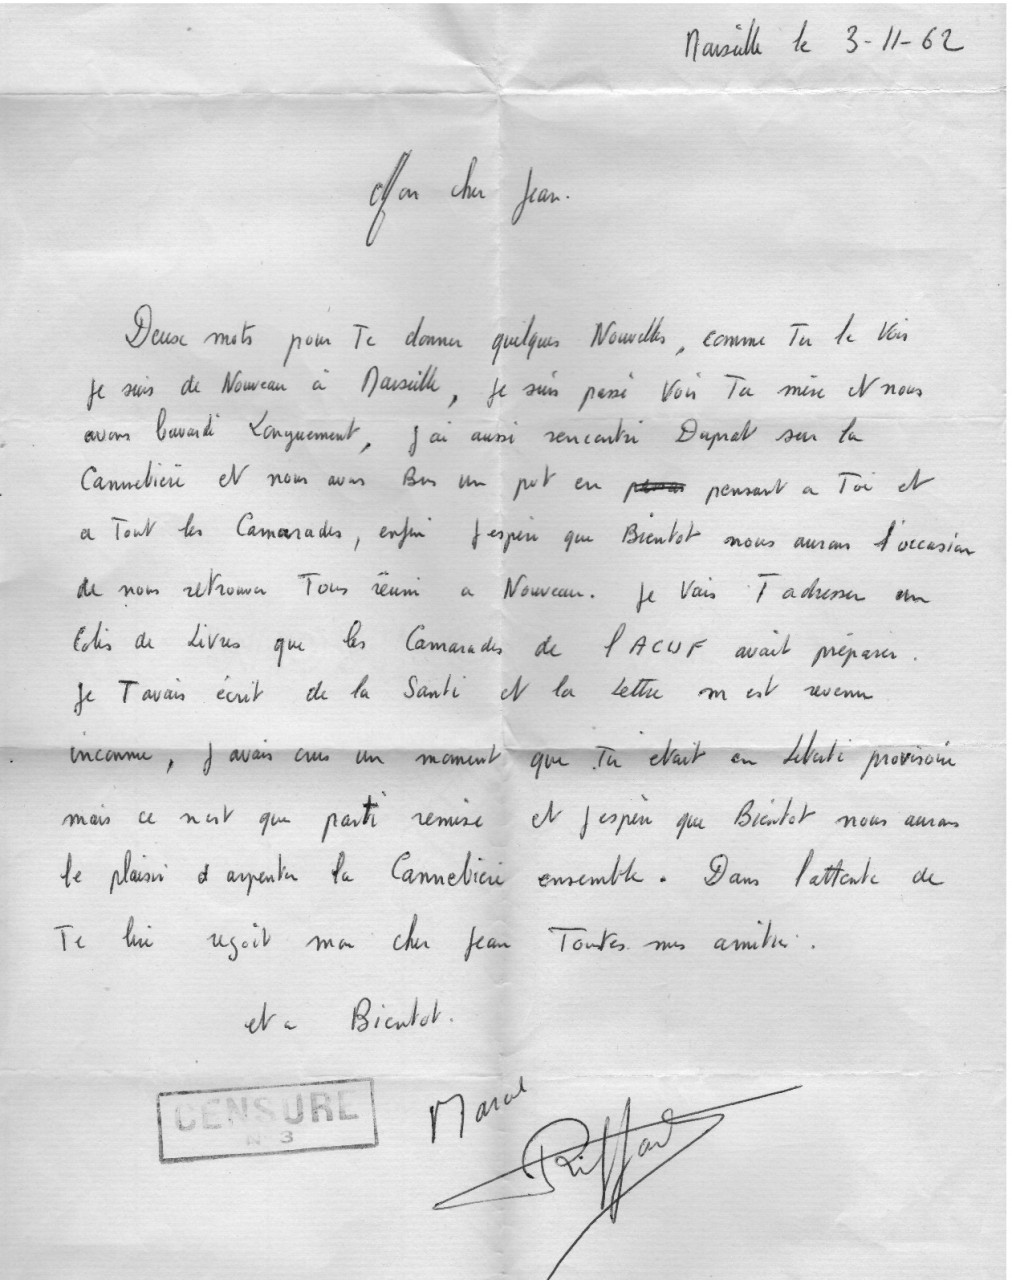 Marseille le 3-11-62
Mon cher Jean.
Deux mots pour Te donner quelques Nouvelles, comme Tu le Vois
Je suis de Nouveau à Marseille, Je suis passé Voir Ta mère et nous
avons bavardé Longuement, J'ai aussi rencontré Duprat sur la
Cannebière et nous avons Bus un pot en pensant a Toi et
a Tout les Camarades, enfin J espère que Bientot nous aurons l'occasion
de nous retrouver Tous réuni a Nouveau. Je Vais T adresser un
Colis de Livres que les Camarades de l ACUF avait préparer.
Je T avais écrit de la Santé et la Lettre m est revenu
inconnue, J avais cru un moment que Tu etait en Liberté provisoire
mais ce n est que parti remise et J espère que Bientot nous aurons
le plaisir d arpenter la Cannebière ensemble. Dans l attente de
Te lire reçoit mon cher Jean Toutes mes amitiés.
et a Bientot.
CENSURE
N° 3
Marcel
Riffard